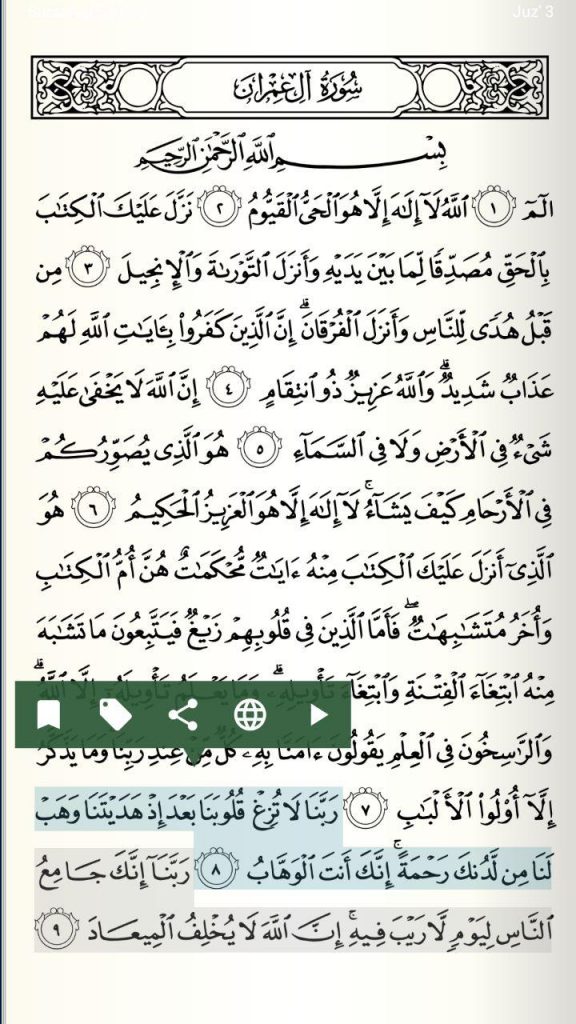 Juz' 3
سُورَةُ آلِ عِمْرَانَ
بِسْمِ ٱللَّهِ ٱلرَّحْمَٰنِ ٱلرَّحِيمِ
الٓمٓ ١ ٱللَّهُ لَآ إِلَٰهَ إِلَّا هُوَ ٱلْحَىُّ ٱلْقَيُّومُ ٢ نَزَّلَ عَلَيْكَ ٱلْكِتَٰبَ
بِٱلْحَقِّ مُصَدِّقًا لِّمَا بَيْنَ يَدَيْهِ وَأَنزَلَ ٱلتَّوْرَىٰةَ وَٱلْإِنجِيلَ ٣ مِن
قَبْلُ هُدًى لِّلنَّاسِ وَأَنزَلَ ٱلْفُرْقَانَ ۗ إِنَّ ٱلَّذِينَ كَفَرُوا۟ بِـَٔايَٰتِ ٱللَّهِ لَهُمْ
عَذَابٌ شَدِيدٌ ۗ وَٱللَّهُ عَزِيزٌ ذُو ٱنتِقَامٍ ٤ إِنَّ ٱللَّهَ لَا يَخْفَىٰ عَلَيْهِ
شَىْءٌ فِى ٱلْأَرْضِ وَلَا فِى ٱلسَّمَآءِ ٥ هُوَ ٱلَّذِى يُصَوِّرُكُمْ
فِى ٱلْأَرْحَامِ كَيْفَ يَشَآءُ ۚ لَآ إِلَٰهَ إِلَّا هُوَ ٱلْعَزِيزُ ٱلْحَكِيمُ ٦ هُوَ
ٱلَّذِىٓ أَنزَلَ عَلَيْكَ ٱلْكِتَٰبَ مِنْهُ ءَايَٰتٌ مُّحْكَمَٰتٌ هُنَّ أُمُّ ٱلْكِتَٰبِ
وَأُخَرُ مُتَشَٰبِهَٰتٌ ۖ فَأَمَّا ٱلَّذِينَ فِى قُلُوبِهِمْ زَيْغٌ فَيَتَّبِعُونَ مَا تَشَٰبَهَ
مِنْهُ ٱبْتِغَآءَ ٱلْفِتْنَةِ وَٱبْتِغَآءَ تَأْوِيلِهِۦ ۗ وَمَا يَعْلَمُ تَأْوِيلَهُۥٓ إِلَّا ٱللَّهُ ۗ
وَٱلرَّٰسِخُونَ فِى ٱلْعِلْمِ يَقُولُونَ ءَامَنَّا بِهِۦ كُلٌّ مِّنْ عِندِ رَبِّنَا ۗ وَمَا يَذَّكَّرُ
إِلَّآ أُو۟لُوا۟ ٱلْأَلْبَٰبِ ٧ رَبَّنَا لَا تُزِغْ قُلُوبَنَا بَعْدَ إِذْ هَدَيْتَنَا وَهَبْ
لَنَا مِن لَّدُنكَ رَحْمَةً ۚ إِنَّكَ أَنتَ ٱلْوَهَّابُ ٨ رَبَّنَآ إِنَّكَ جَامِعُ
ٱلنَّاسِ لِيَوْمٍ لَّا رَيْبَ فِيهِ ۚ إِنَّ ٱللَّهَ لَا يُخْلِفُ ٱلْمِيعَادَ ٩